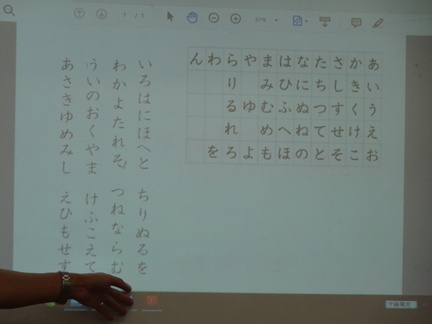 あいうえお
かきくけこ
さしすせそ
たちつてと
なにぬねの
はひふへほ
まみむめも
やゆよ
らりるれろ
わを
ん
いろはにほへと ちりぬるを
わかよたれそ つねならむ
ういのおくやま けふこえて
あさきゆめみし えひもせす